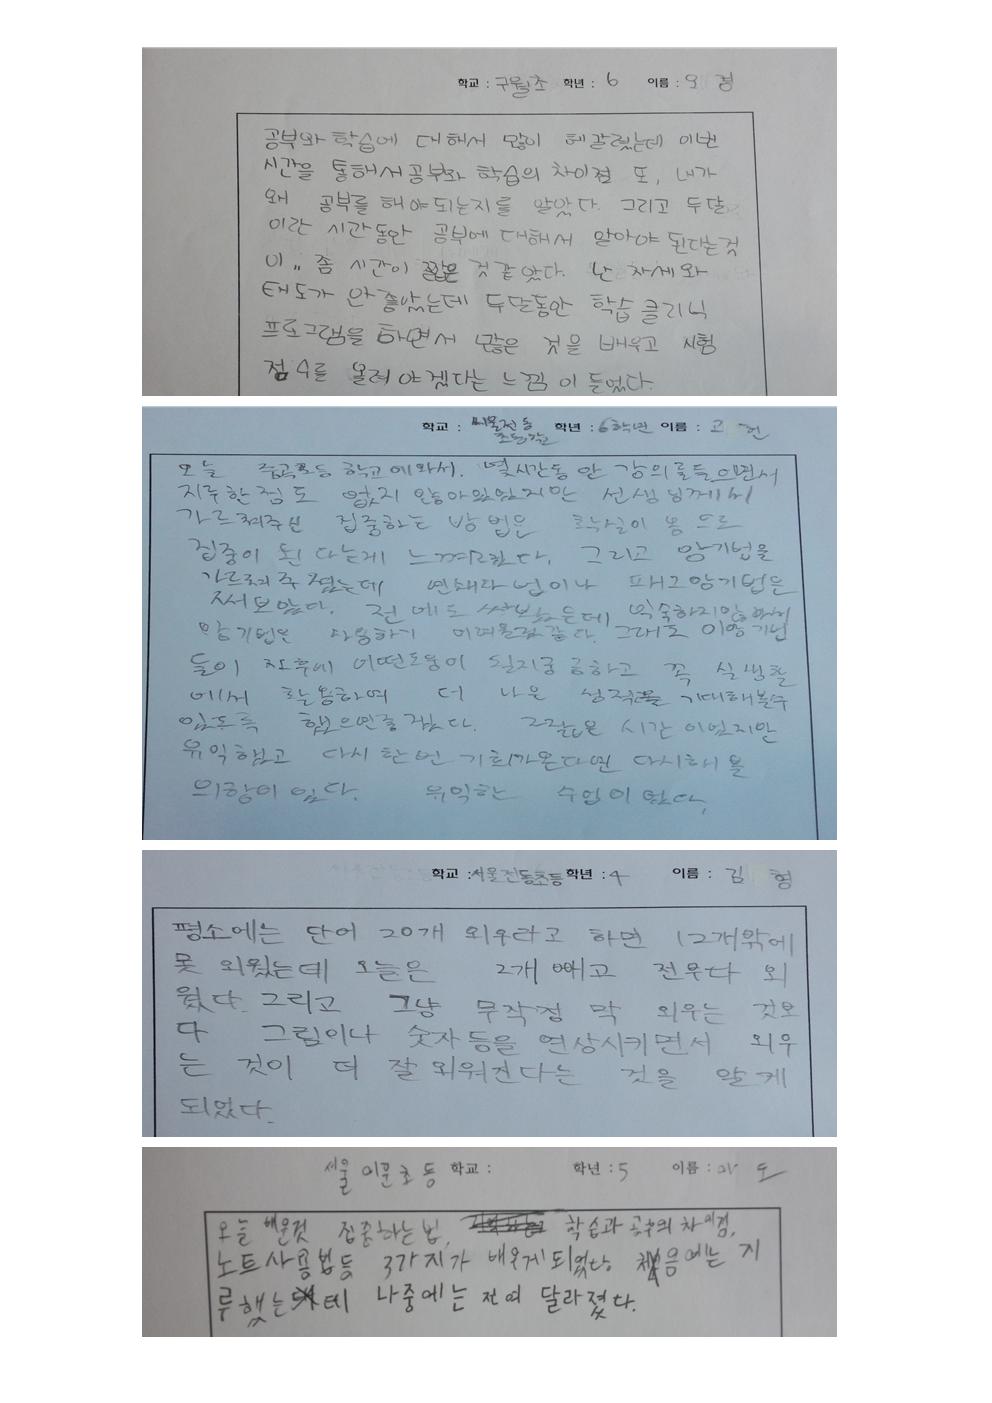 학교 : 구월초 학년 : 6 이름 : 오 경
공부와 학습에 대해서 많이 헤갈렸는데 이번
시간을 통해서 공부와 학습의 차이점 또, 내가
왜 공부를 해야되는지를 알았다. 그리고 두달
이란 시간동안 공부에 대해서 알아야 된다는것
이,, 좀 시간이 짧은 것 같았다. 난 자세와
태도가 안 좋았는데 두달동안 학습 클리닉
프로그램을 하면서 많은 것을 배우고 시험
점수를 올려야겠다는 느낌이 들었다.
학교 : 서울전동초등학교 학년 : 6학년 이름 : 고 헌
오늘 초등학교에 와서. 몇시간동안 강의를 들으면서
지루한점도 없지 않아있었지만 선생님께서
가르쳐주신 집중하는 방법은 확실이
집중이 된다는게 느껴졌다. 그리고 암기법을
가르쳐주셨는데 암기법은
써보았다. 전에도 써보았는데 익숙하지않아
암기법은 사용하기 어려울것같다. 그래도
들이 차후에 어떤도움이 될지궁금하고 꼭 실생활
에서 활용하여 더 나은 성적을 기대해볼수
있도록 했으면좋겠다. 짧은 시간이었지만
유익했고 다시한번 기회가온다면 다시해볼
의향이 있다. 유익한 수업이였다.
학교 : 서울전동초등 학년 : 4 이름 : 김 형
평소에는 단어 20개 외우라고 하면 12개밖에
못 외웠는데 오늘은 2개 빼고 전우다 외
웠다. 그리고 그냥 무작정 막 외우는 것보
다 그림이나 숫자등을 연상시키면서 외우
는 것이 더 잘 외워진다는 것을 알게
되었다.
서울 이문초등 학교 : 학년 : 5 이름 : 마 도
오늘 배운것 집중하는법, 학습과 공부의 차이점,
노트사용법등 3가지가 배우게되었다. 처음에는 지
루했는데 나중에는 전여 달라졌다.